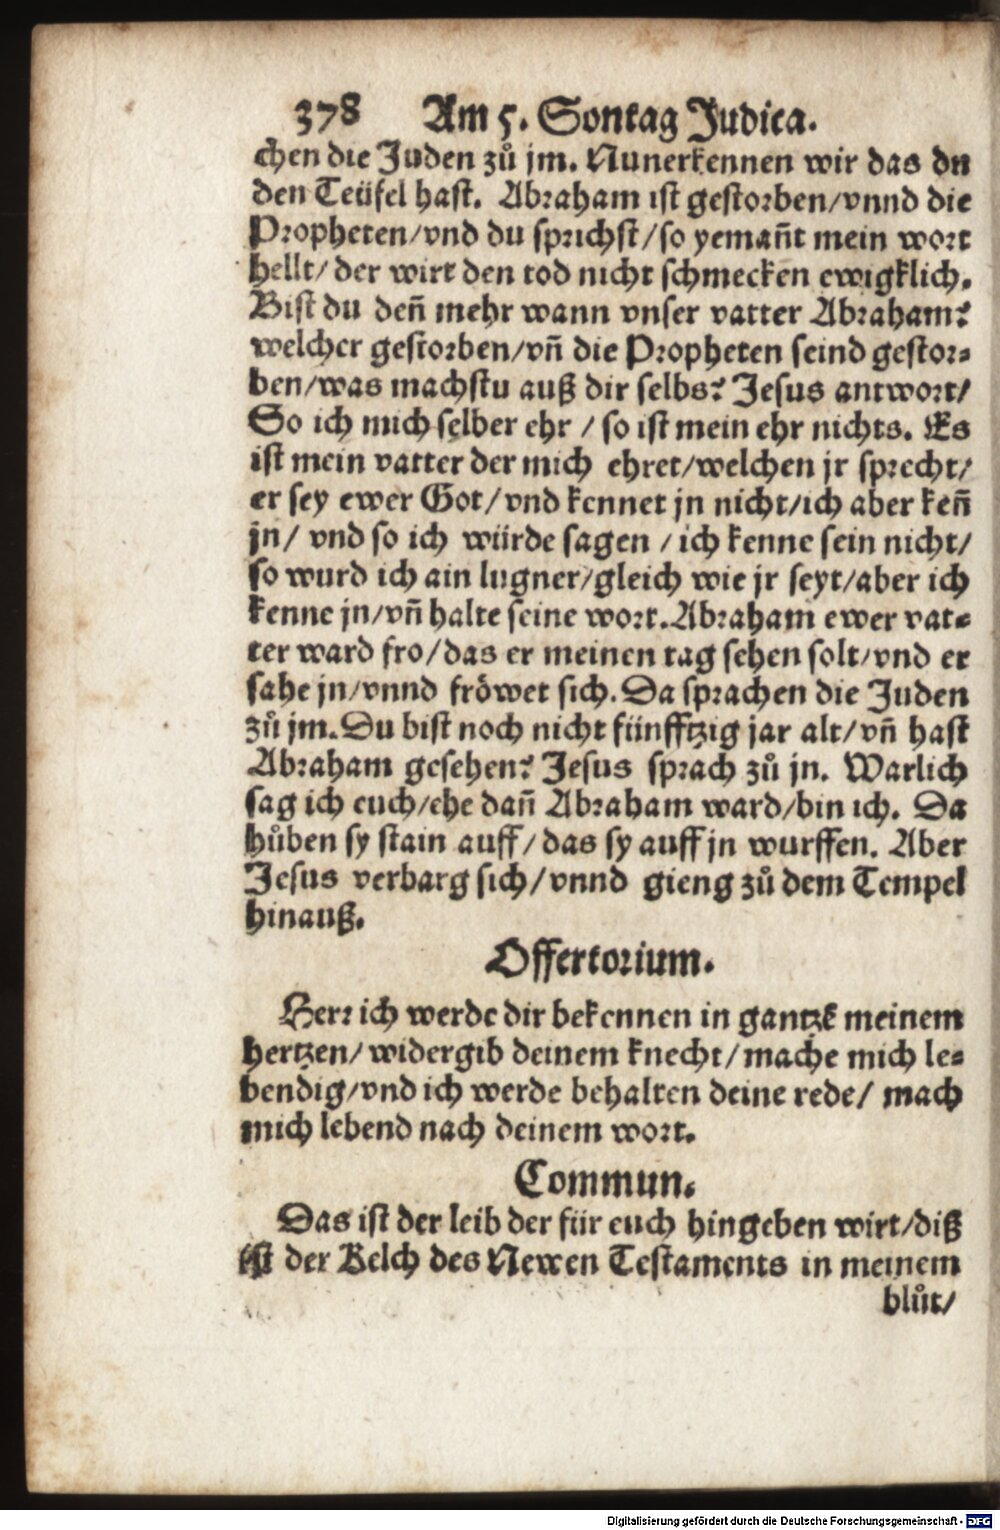 378 Am 5. Sontag Judica.
chen die Juden zů jm. Nunerkennen wir das du
den Teüfel hast. Abraham ist gestorben/vnnd die
Propheten/vnd du sprichst/so yemañt mein wort
hellt/ der wirt den tod nicht schmecken ewigklich.
Bist du deñ mehr wann vnser vatter Abraham?
welcher gestorben/vñ die Propheten seind gestor⸗
ben/was machstu auß dir selbs? Jesus antwort/
So ich mich selber ehr / so ist mein ehr nichts. Es
ist mein vatter der mich ehret/welchen jr sprecht/
er sey ewer Got/vnd kennet jn nicht/ich aber keñ
jn/ vnd so ich würde sagen / ich kenne sein nicht/
so wurd ich ain lugner/gleich wie jr seyt/aber ich
kenne jn/vñ halte seine wort. Abraham ewer vat⸗
ter ward fro/das er meinen tag sehen solt/vnd er
sahe jn/vnnd fröwet sich. Da sprachen die Juden
zů jm. Du bist noch nicht fünfftzig jar alt/vñ hast
Abraham gesehen? Jesus sprach zů jn. Warlich
sag ich euch/ehe dañ Abraham ward/bin ich. Da
hůben sy stain auff/ das sy auff jn wurffen. Aber
Jesus verbarg sich/vnnd gieng zů dem Tempel
hinauß.
Offertorium.
Herr ich werde dir bekennen in gantzē meinem
hertzen/ widergib deinem knecht/mache mich le⸗
bendig/vnd ich werde behalten deine rede/ mach
mich lebend nach deinem wort.
Commun.
Das ist der leib der für euch hingeben wirt/diß
ist der Kelch des Newen Testaments in meinem
blůt/
Digitalisierung gefördert durch die Deutsche Forschungsgemeinschaft - DFG